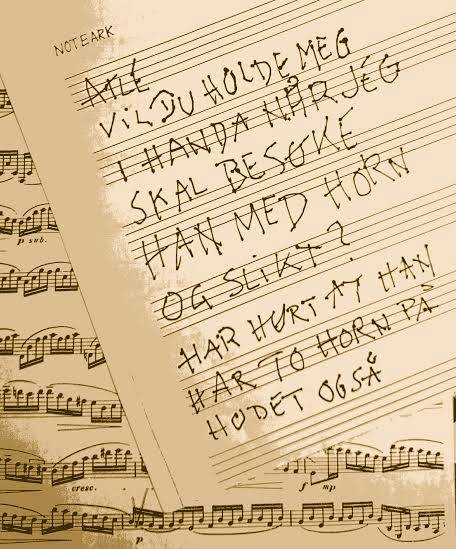 NOTEARK
ATLE
VIL DU HOLDE MEG
I HANDA NÅR JEG
SKAL BESØKE
HAN MED HORN
OG SLIKT?
HAR HURT AT HAN
HAR TO HORN PÅ
HODET OGSÅ
p sub.
cresc.
f mp
p